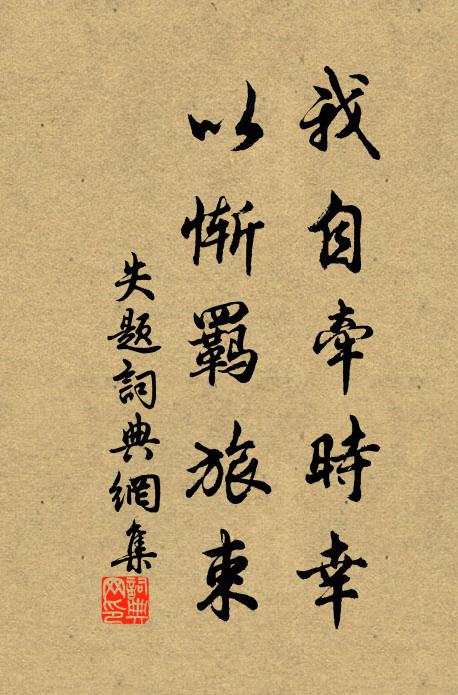 我自牽時幸
以慚羈旅東
失題詞典網集
詞典网印